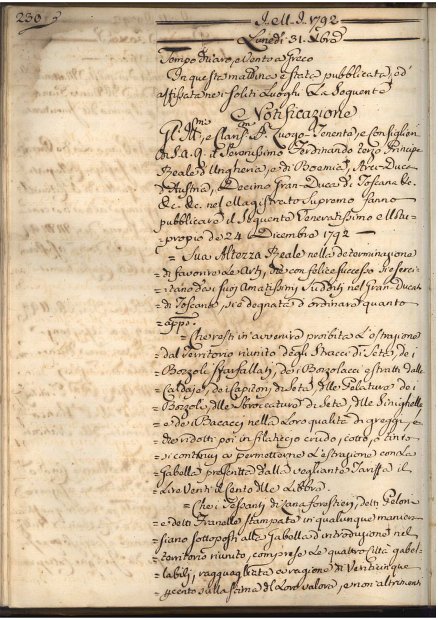 230
A.ell.I. 1792
Lunedì 31. Xbre
Tempo chiaro, e Vento a Greco
In questa mattina è stata pubblicata, ed
affissata ne i soliti Luoghi La Seguente
Notificazione
Gl' Ill.mi, e Clariss.mi SS.ri Luogo-Tenente, e Consiglieri
di S. A. R. il Serenissimo Ferdinando terzo Principe
Reale d'Ungheria, e di Boemia, Arci-Duca
d'Austria, Decimo Gran-Duca di Toscana &c.
&c. &c. nel Magistrato Supremo fanno
pubblicare il Seguente Veneratissimo Motu-
proprio de 24 Dicembre 1792 —
= Sua Altezza Reale nella determinazione
= di favorire le Arti, che con felice successo si eserci-
= tano da suoi Amatissimi Sudditi nel Gran-Ducato
= di Toscana, si è degnata d'ordinare quanto
= app.o
= Che resti in avvenire proibita l'estrazione
= dal Territorio riunito degli Stracci di Seta, de i
= Bozzoli sfarfallati, de i Bozzolacci estratti dalle
= Caldaje, de i Capitoni di Seta, delle Pelature de i
= Bozzoli, delle Sbroccature di Seta, delle Sinighelle
= e de i Bacacci nella loro qualità di greggi, e
= che ridotti poi in filaticcio crudo, cotto, o tinto
= si continui a permetterne l'estrazione con la
= Gabella prescritta dalla vegliante Tariffa di
= Lire Venti il Cento delle Libbre.
= Che i Pelpanti di Lana forestieri, detti Pelone
= e detti Granello stampato in qualunque maniera
= siano sottoposti alle Gabella d'introduzione nel
= territorio riunito, comprese le quattro Città gabel-
= labili, ragguagliata a ragione di Venticinque
= per cento sulla stima del loro valore, e non altrimenti